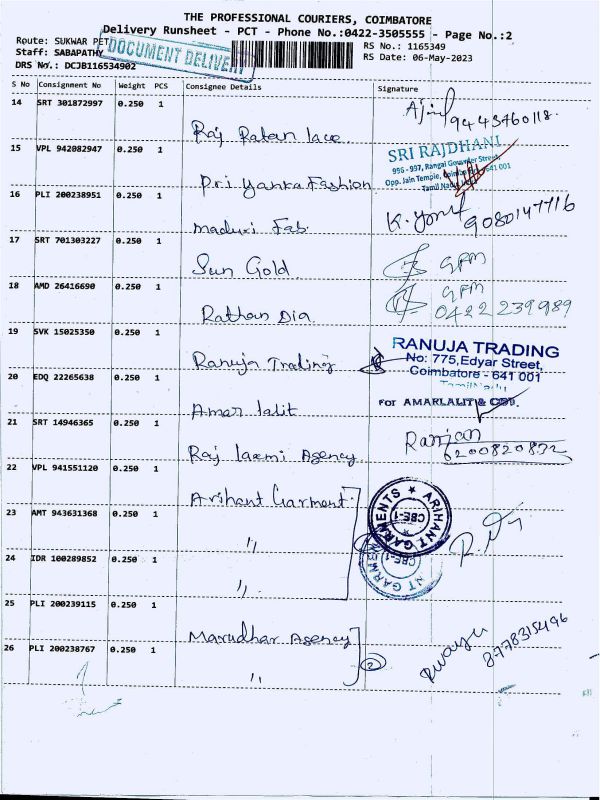 THE PROFESSIONAL COURIERS, COIMBATORE
Delivery Runsheet - PCT - Phone No.:0422-3505555 - Page No.:2
Route: SUKWAR PET
DOCUMENT DELIVERY
RS No.: 1165349
Staff: SABAPATHY
RS Date: 06-May-2023
DRS No.: DCJB116534902
S No Consignment No Weight PCS Consignee Details Signature
14 SRT 301872997 0.250 1 Raj Ratan lace 9443460118
15 VPL 942082947 0.250 1 Priyanka Fashion
SRI RAJDHANI
996 - 997, Rangai Gowder Street,
Opp. Jain Temple, 641 001
16 PLI 200238951 0.250 1 maduri Fab. 9080147716
17 SRT 701303227 0.250 1 Sun Gold
18 AMD 26416690 0.250 1 Rathan Dia 0422 239989
19 SVK 15025350 0.250 1 Ranuja Trading
RANUJA TRADING
No: 775, Edyar Street,
Coimbatore - 641 001
Tamil Nadu
20 EDQ 22265638 0.250 1 Amar lalit
For AMARLALIT & CO.
21 SRT 14946365 0.250 1 Raj laxmi Agency Ranjan
6200820832
22 VPL 941551120 0.250 1 Arihant Garment
ARIHANT GARMENTS
CBE-1
23 AMT 943631368 0.250 1 "
24 IDR 100289852 0.250 1 "
25 PLI 200239115 0.250 1 Marudhar Agency
26 PLI 200238767 0.250 1 " 2 8778315496